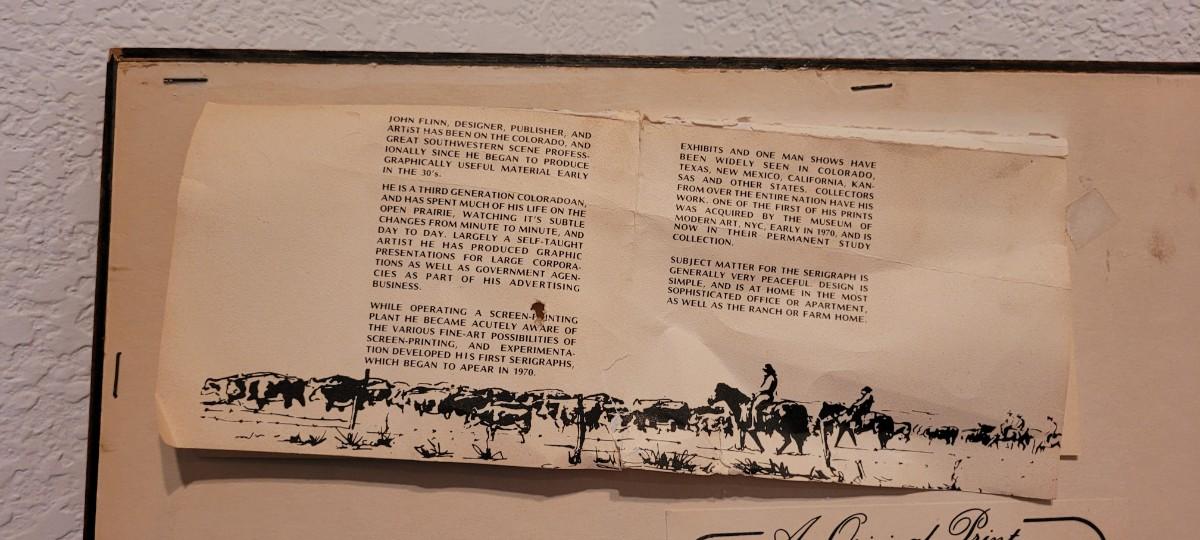 JOHN FLINN, DESIGNER, PUBLISHER, AND
ARTIST HAS BEEN ON THE COLORADO, AND
GREAT SOUTHWESTERN SCENE PROFESS-
IONALLY SINCE HE BEGAN TO PRODUCE
GRAPHICALLY USEFUL MATERIAL EARLY
IN THE 30's.
HE IS A THIRD GENERATION COLORADOAN,
AND HAS SPENT MUCH OF HIS LIFE ON THE
OPEN PRAIRIE, WATCHING IT'S SUBTLE
CHANGES FROM MINUTE TO MINUTE, AND
DAY TO DAY. LARGELY A SELF-TAUGHT
ARTIST HE HAS PRODUCED GRAPHIC
PRESENTATIONS FOR LARGE CORPORA-
TIONS AS WELL AS GOVERNMENT AGEN-
CIES AS PART OF HIS ADVERTISING
BUSINESS.
WHILE OPERATING A SCREEN-PRINTING
PLANT HE BECAME ACUTELY AWARE OF
THE VARIOUS FINE-ART POSSIBILITIES OF
SCREEN-PRINTING, AND EXPERIMENTA-
TION DEVELOPED HIS FIRST SERIGRAPHS,
WHICH BEGAN TO APEAR IN 1970.
EXHIBITS AND ONE MAN SHOWS HAVE
BEEN WIDELY SEEN IN COLORADO,
TEXAS, NEW MEXICO, CALIFORNIA, KAN-
SAS AND OTHER STATES. COLLECTORS
FROM OVER THE ENTIRE NATION HAVE HIS
WORK. ONE OF THE FIRST OF HIS PRINTS
WAS ACQUIRED BY THE MUSEUM OF
MODERN ART, NYC, EARLY IN 1970, AND IS
NOW IN THEIR PERMANENT STUDY
COLLECTION.
SUBJECT MATTER FOR THE SERIGRAPH IS
GENERALLY VERY PEACEFUL. DESIGN IS
SIMPLE, AND IS AT HOME IN THE MOST
SOPHISTICATED OFFICE OR APARTMENT,
AS WELL AS THE RANCH OR FARM HOME.
A Original Print